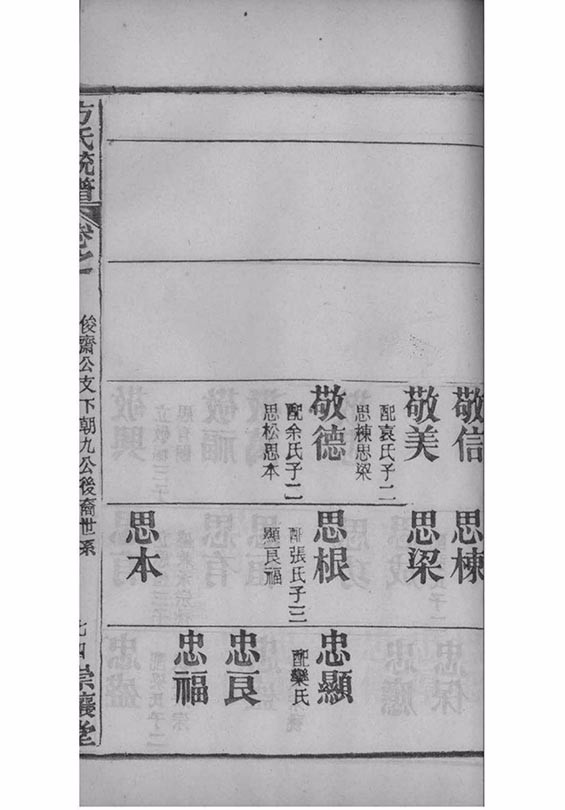 敬信
敬美
配袁氏子二
思棟思梁
敬德
配余氏子二
思松思本
思棟
思梁
思根
配張氏子三
顯良福
思本
忠顯
配欒氏
忠良
忠福
方氏統譜
卷之一
俊齋公支下朝九公後裔世系
崇讓堂